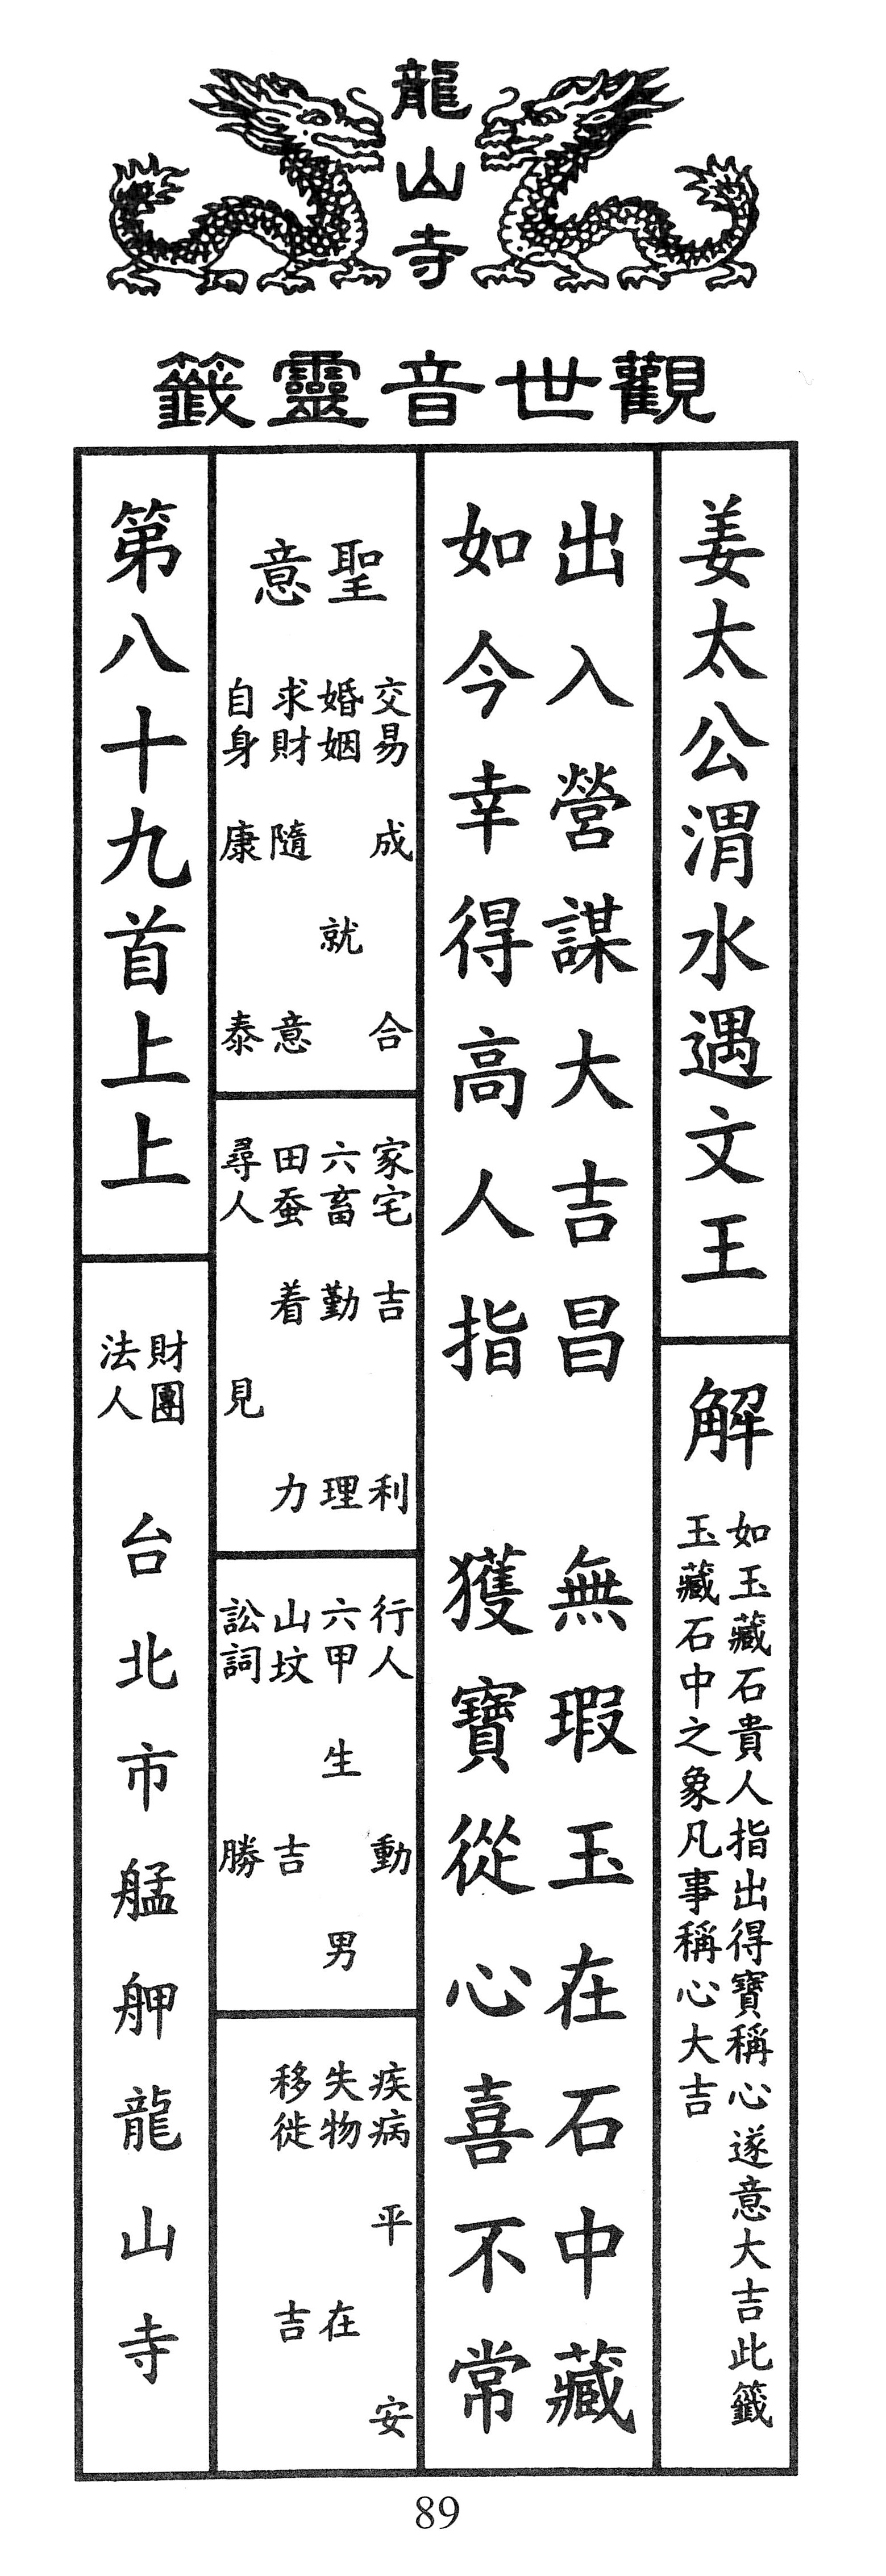 龍山寺
觀世音靈籤
姜太公渭水遇文王
解
如玉藏石貴人指出得寶稱心遂意大吉此籤
玉藏石中之象凡事稱心大吉
出入營謀大吉昌 無瑕玉在石中藏
如今幸得高人指 獲寶從心喜不常
聖意
交易 成合
婚姻 就
求財 隨意
自身 康泰
家宅 吉利
六畜 勤理
田蚕 着力
尋人 見
行人 動
六甲 生男
山坟 吉
訟詞 勝
疾病 平安
失物 在
移徙 吉
第八十九首上上
財團法人
台北市艋舺龍山寺
89